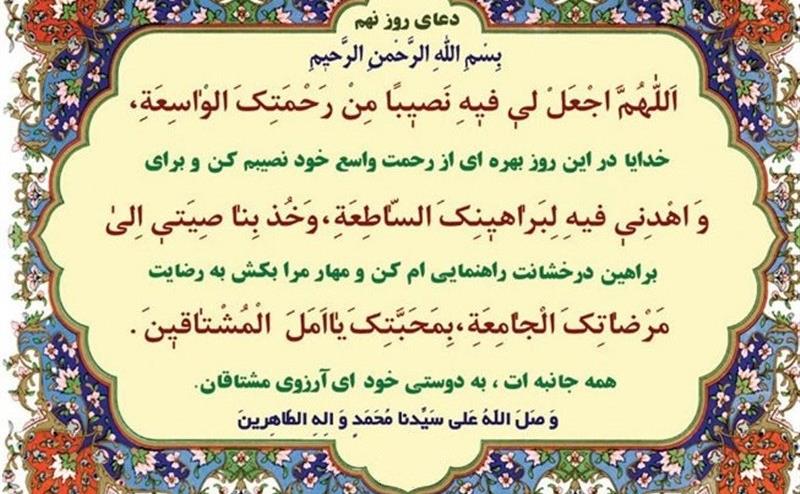 دعای روز نهم
بِسْمِ اللهِ الرَّحْمنِ الرَّحیمِ
اَللّهُمَّ اجْعَلْ لی فیهِ نَصیبًا مِنْ رَحْمَتِکَ الْواسِعَةِ،
خدایا در این روز بهره ای از رحمت واسع خود نصیبم کن و برای
وَ اهْدِنی فیهِ لِبَراهینِکَ السّاطِعَةِ، وَخُذ بِنا صِیَتی اِلیٰ
براهین درخشانت راهنمایی ام کن و مهار مرا بکش به رضایت
مَرْضاتِکَ الْجامِعَةِ، بِمَحَبَّتِکَ یااَمَلَ الْمُشْتاقینَ.
همه جانبه ات ، به دوستی خود ای آرزوی مشتاقان.
وَ صَلَ اللهُ عَلی سَیِّدنا مُحَمَدٍ وَ الِهِ الطّاهِرینَ